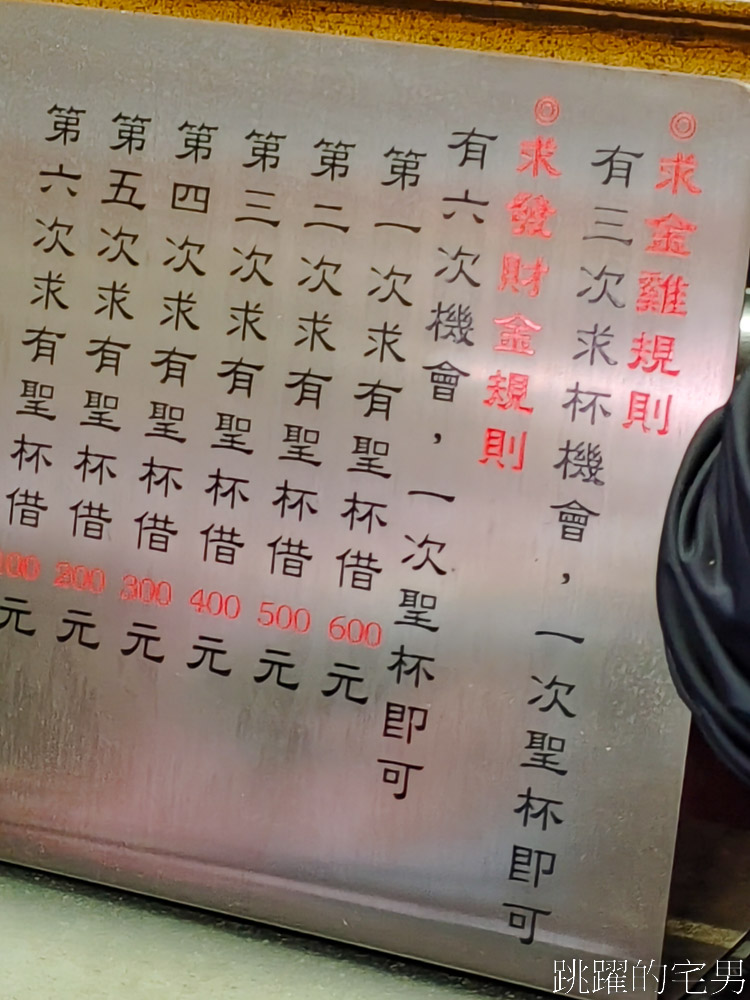 ◎求金雞規則
有三次求杯機會，一次聖杯即可
◎求發財金規則
有六次機會，一次聖杯即可
第一次求有聖杯借600元
第二次求有聖杯借500元
第三次求有聖杯借400元
第四次求有聖杯借300元
第五次求有聖杯借200元
第六次求有聖杯借100元
跳躍的宅男